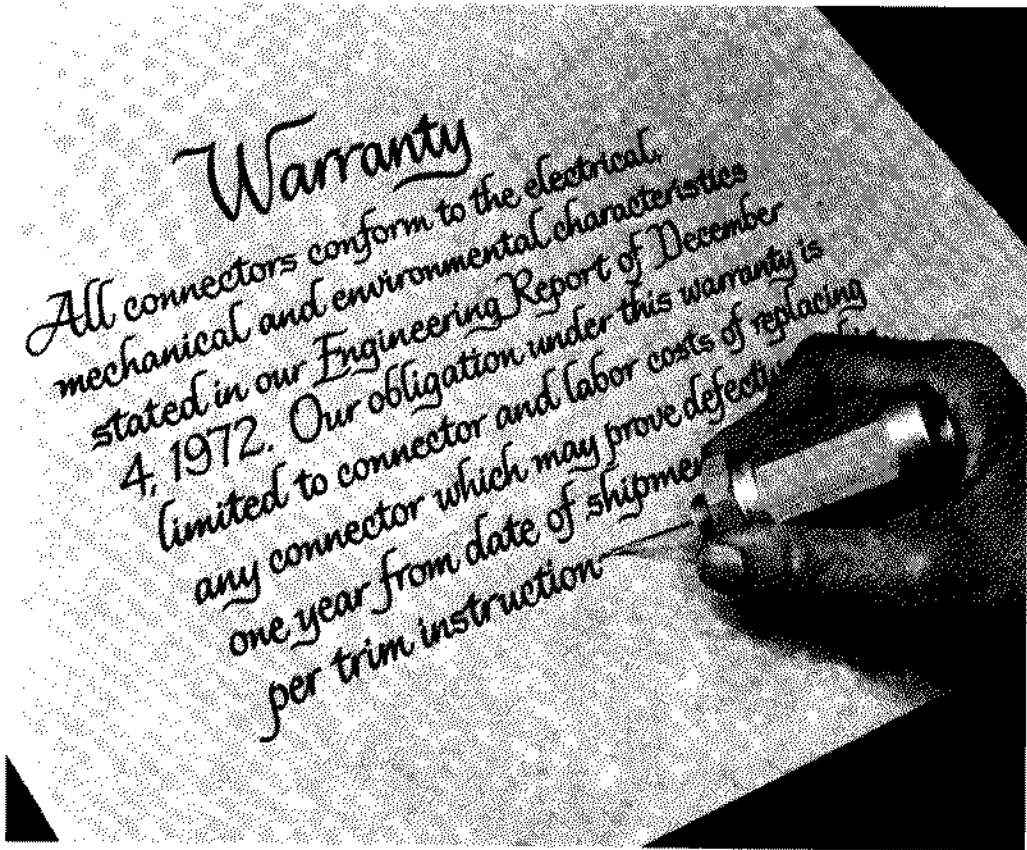 Warranty
All connectors conform to the electrical,
mechanical and environmental characteristics
stated in our Engineering Report of December
4, 1972. Our obligation under this warranty is
limited to connector and labor costs of replacing
any connector which may prove
one year from date of
per trim instruction